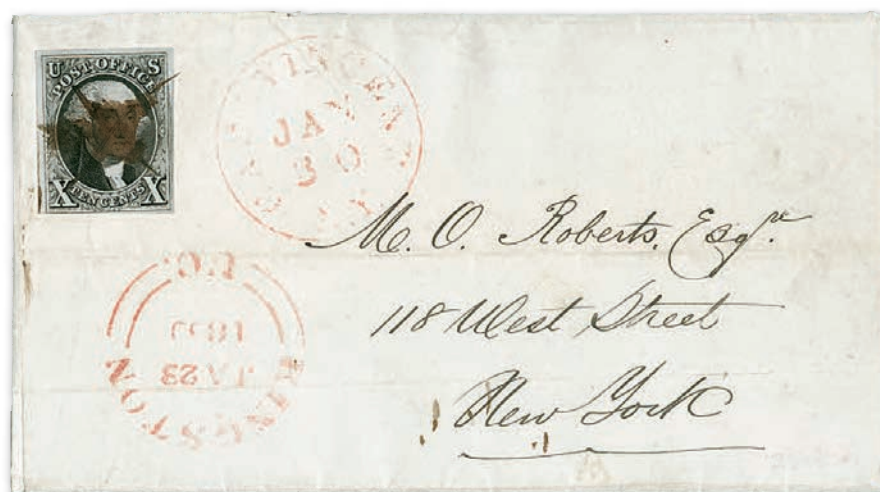 U S
POST OFFICE
X TEN CENTS X
JAN
30
M. O. Roberts, Esqre.
118 West Street
New York
KINGSTON
JA 23
U.C.